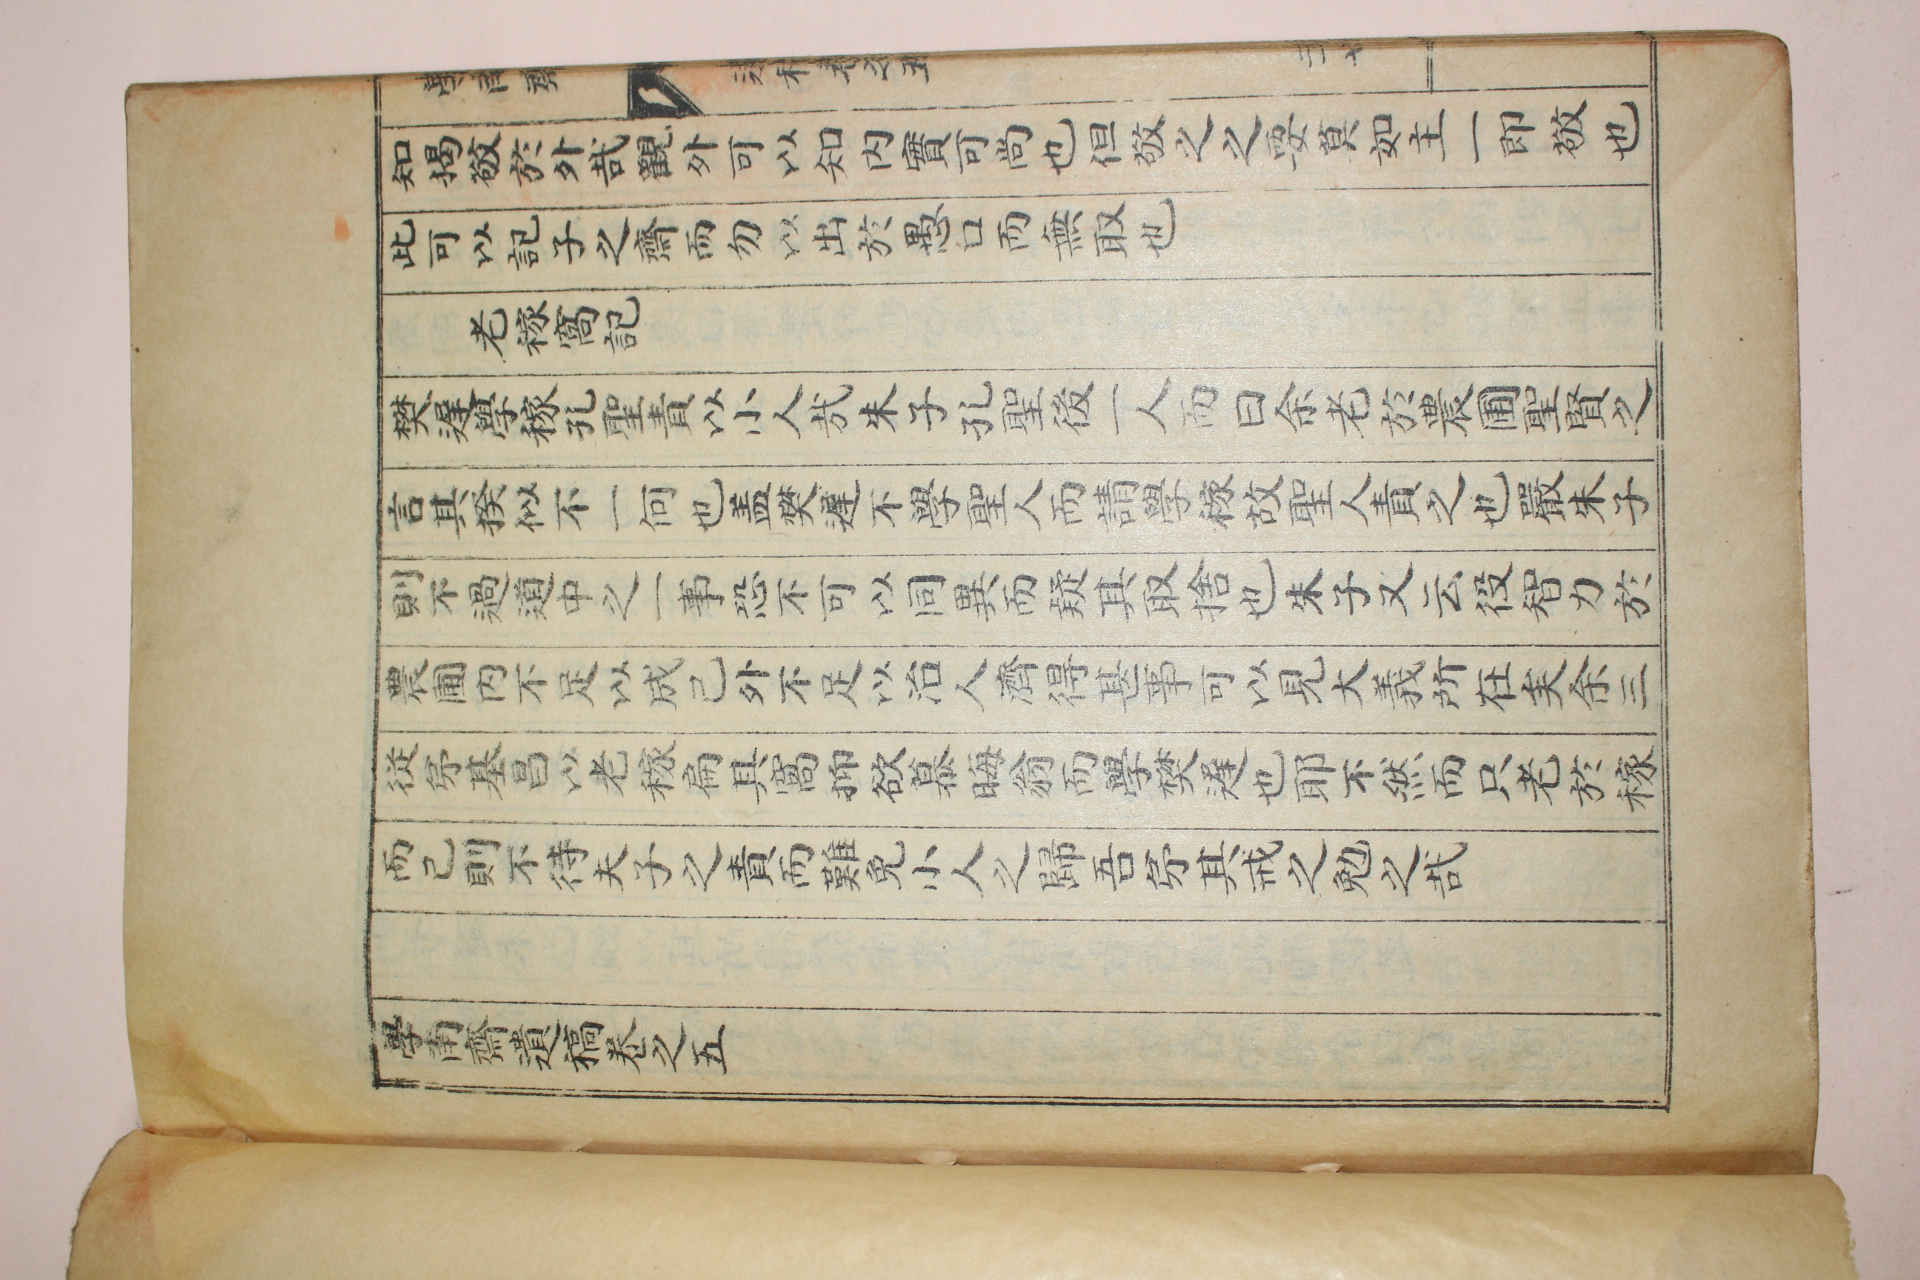 知揭敬於外哉觀外可以知內實可尚也但敬之之要莫如主一即敬也
此可以記子之齋而勿以出於愚口而無取也
老稼窩記
樊遲學稼孔聖責以小人哉朱子孔聖後一人而曰余老於農圃聖賢之
言其揆似不一何也盖樊遲不學聖人而請學稼故聖人責之也嚴朱子
則不過道中之一事恐不可以同異而疑其取捨也朱子又云役智力於
農圃內不足以成己外不足以治人濟得甚事可以見大義所在矣余三
從弟基昌以老稼扁其窩抑欲慕晦翁而學樊遲也耶不然而只老於稼
而已則不待夫子之責而難免小人之歸吾弟其戒之勉之哉
學南齋遺稿卷之五